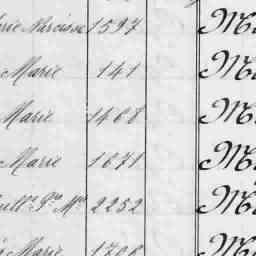 rie Narcisse 1597 M
Marie 141 M
Marie 1468 M
Marie 1671 M
2252 M
Marie 1706 M